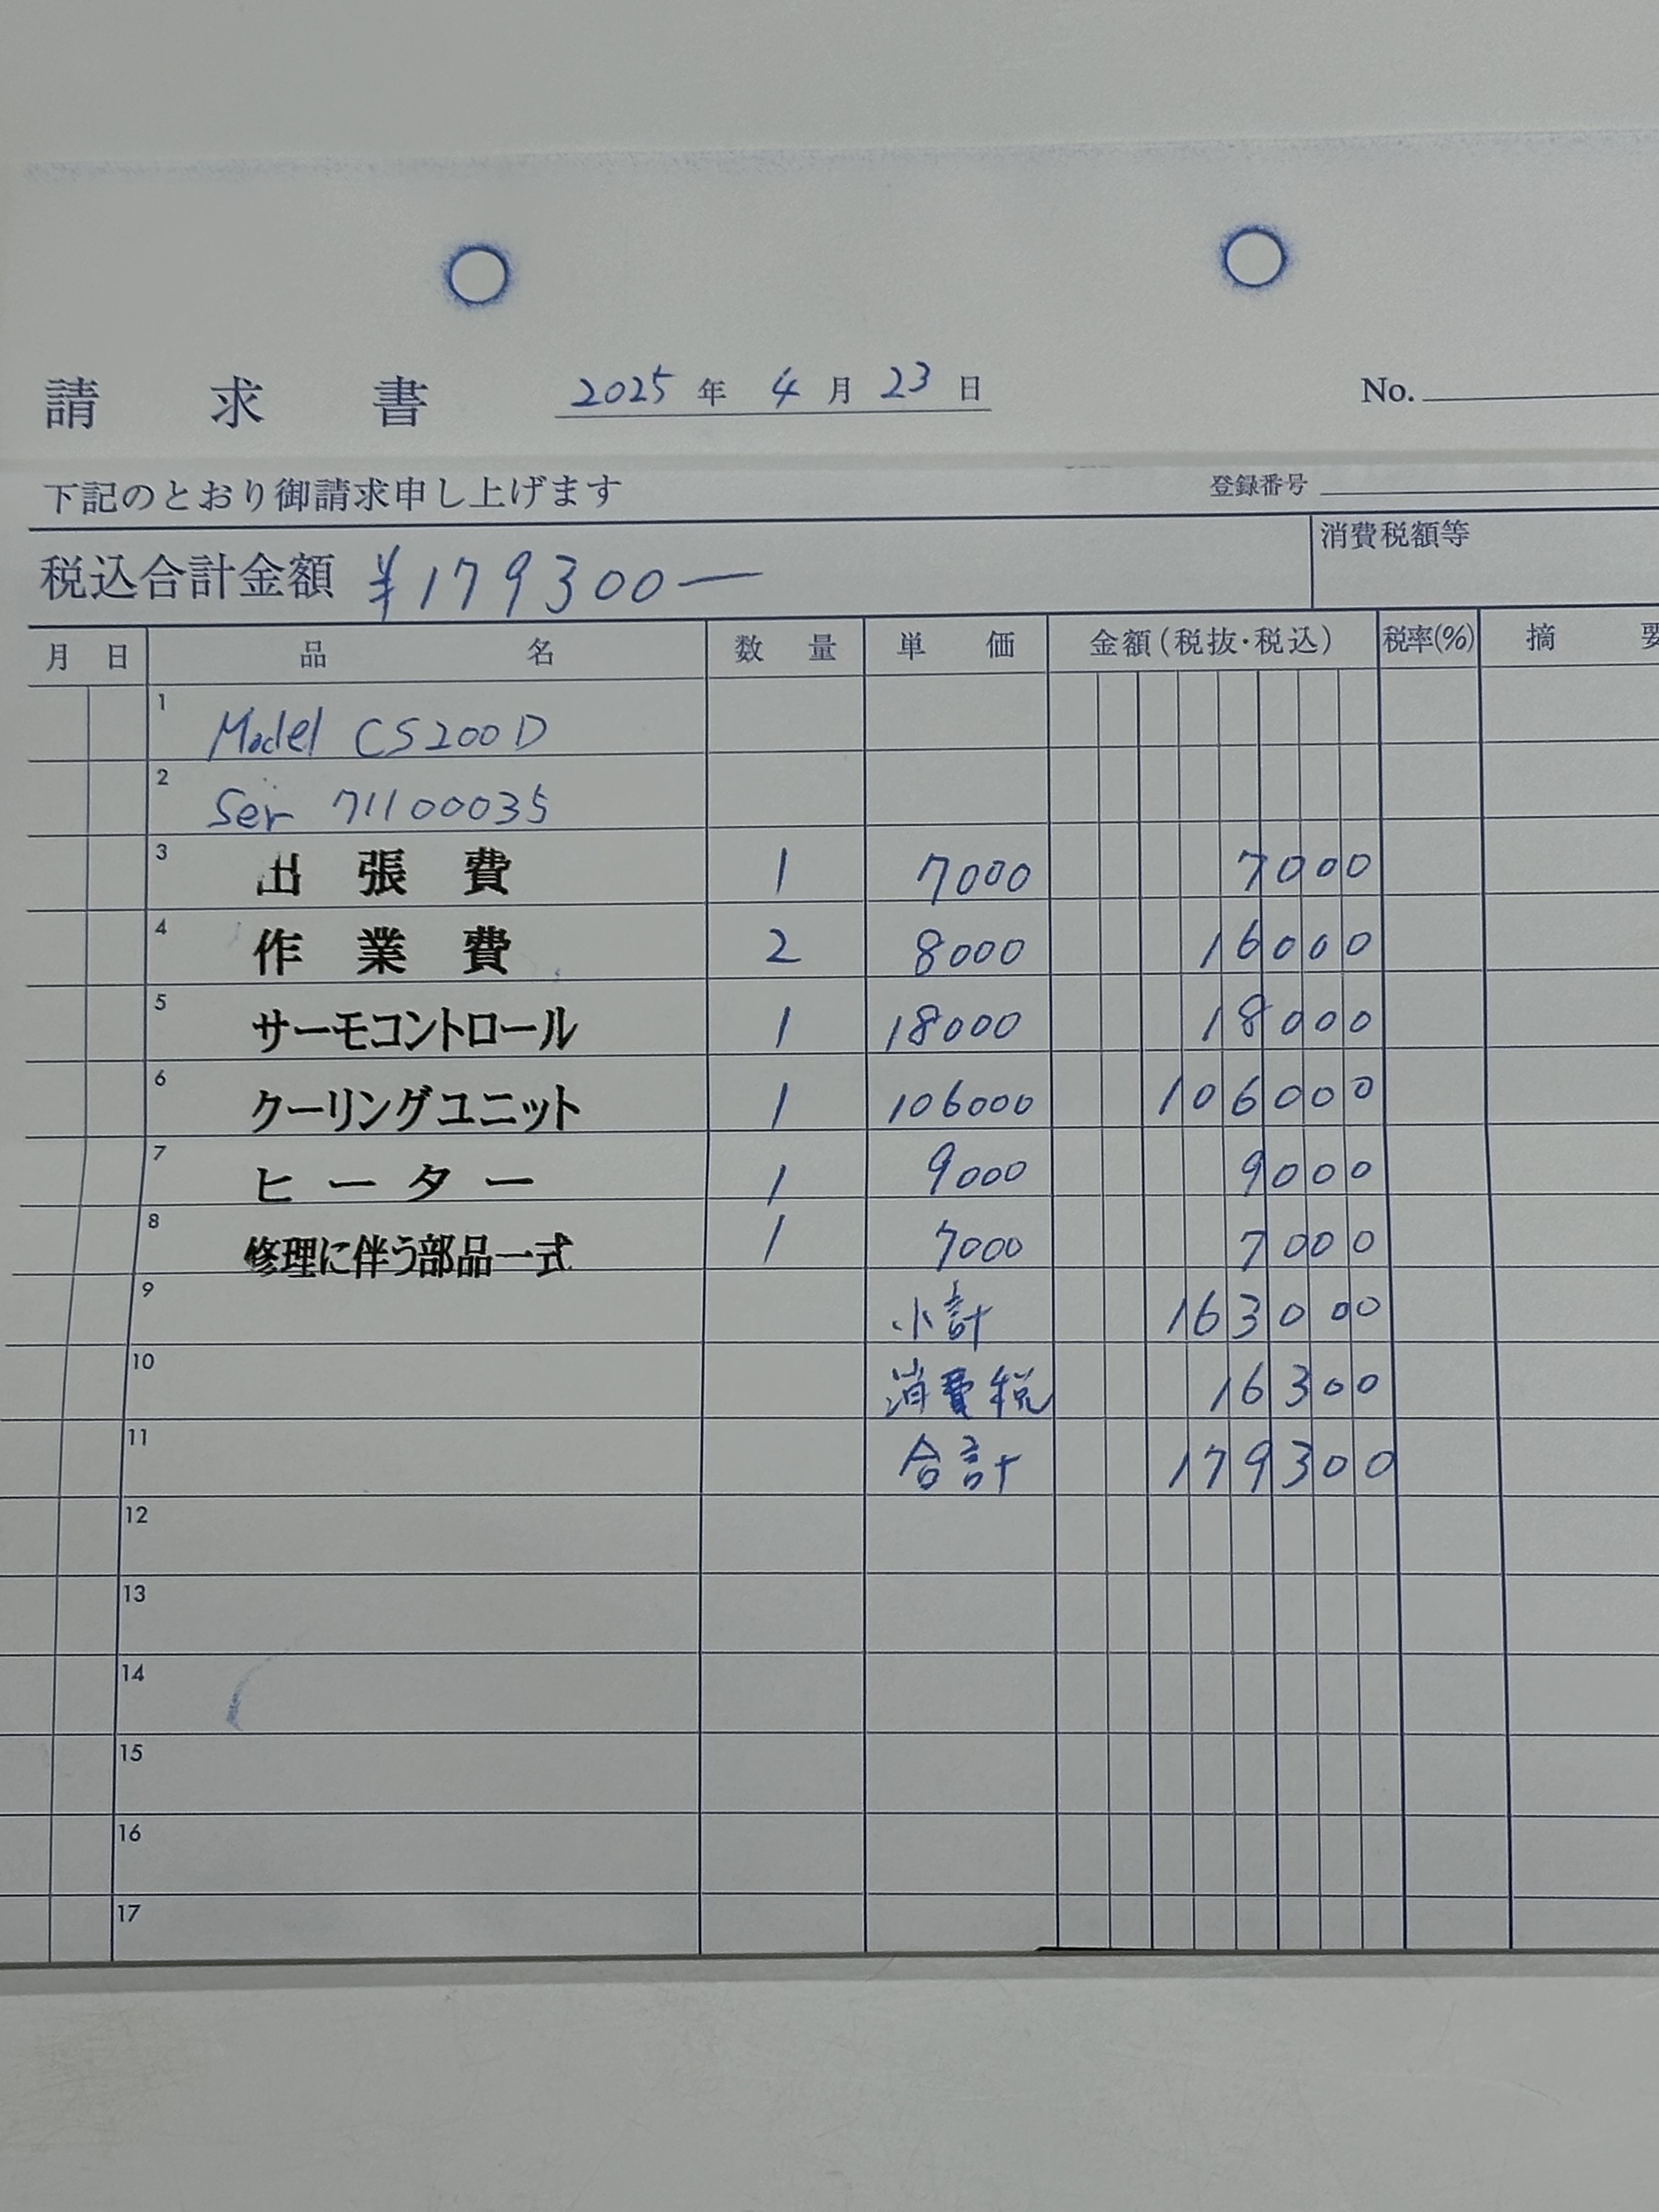 請求書 2025年4月23日 No.
下記のとおり御請求申し上げます 登録番号
税込合計金額 ¥179300ー 消費税額等
月 日 品名 数量 単価 金額(税抜・税込) 税率(%) 摘要
1 Model CS200D
2 Ser 71100035
3 出張費 1 7000 7000
4 作業費 2 8000 16000
5 サーモコントロール 1 18000 18000
6 クーリングユニット 1 106000 106000
7 ヒーター 1 9000 9000
8 修理に伴う部品一式 1 7000 7000
9 小計 163000
10 消費税 16300
11 合計 179300
12
13
14
15
16
17